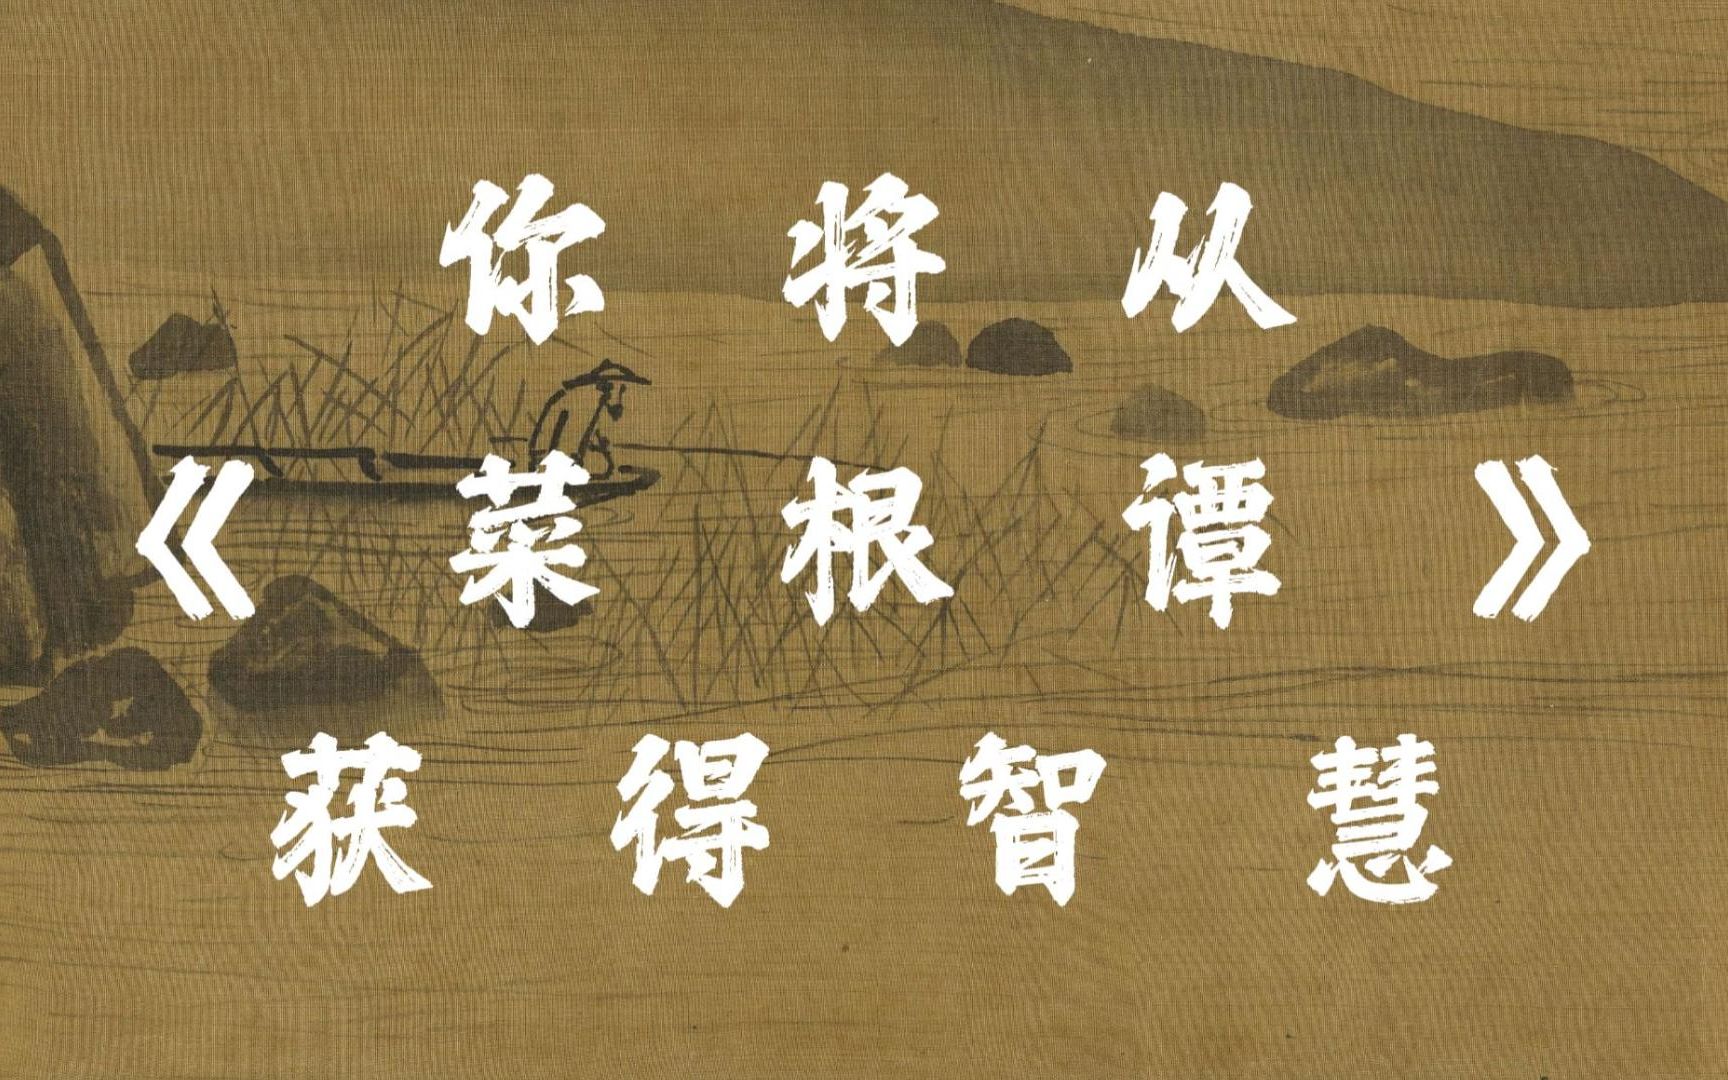 你将从
《菜根谭》
获得智慧